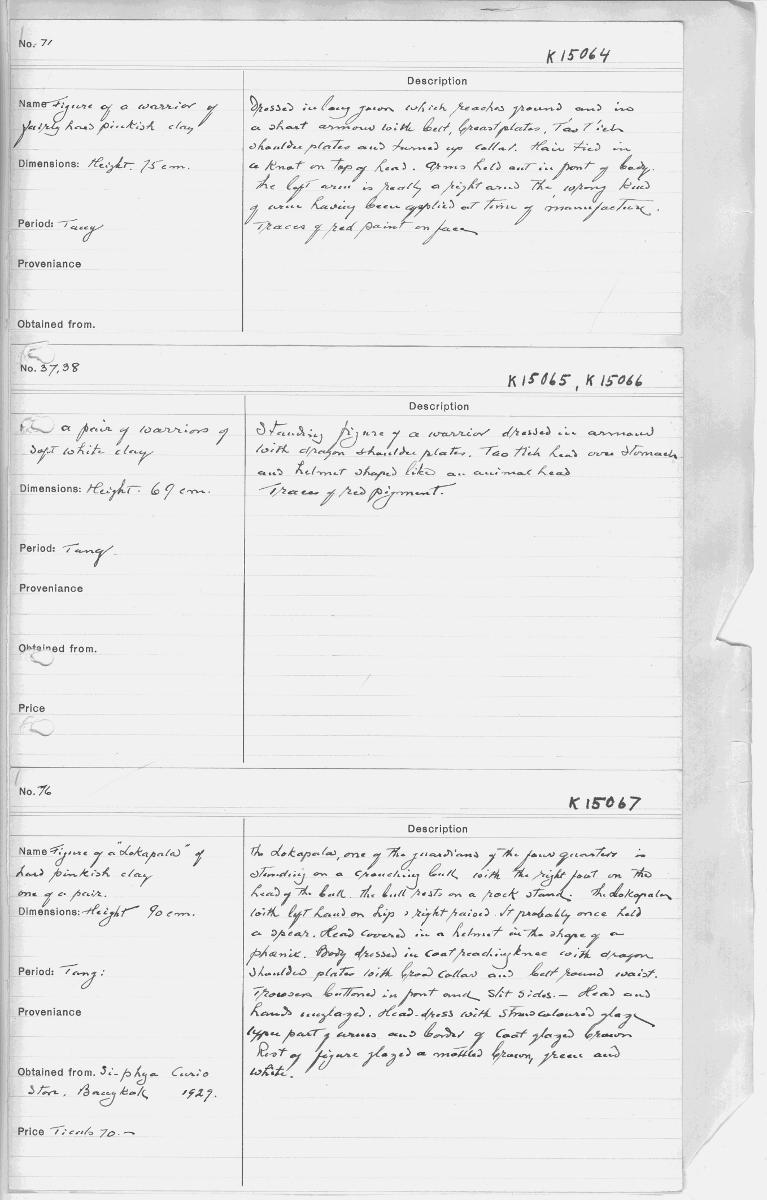 No. 71
K 15064
Description
Name Figure of a warrior of
fairly hard pinkish clay
Dimensions: Height. 75 cm.
Period: Tang
Proveniance
Obtained from.
Dressed in long gown which reaches ground and in
a short armour with belt, breastplates, Tao T'ieh
shoulder plates and turned up collar. Hair tied in
a knot on top of head. Arms held out in front of body.
the left arm is really a right arm the wrong kind
of arm having been applied at time of manufacture.
Traces of red paint on face
No. 37,38
K 15065, K 15066
Description
a pair of warriors of
soft white clay
Dimensions: Height. 69 cm.
Period: Tang.
Proveniance
Obtained from.
Price
Standing figure of a warrior dressed in armour
with dragon shoulder plates. Tao tieh head over stomach
and helmet shaped like an animal head
Traces of red pigment.
No. 76
K 15067
Description
Name Figure of a "Lokapala" of
hard pinkish clay
one of a pair.
Dimensions: Height 90 cm.
Period: Tang:
Proveniance
Obtained from. Si-phya Curio
Store, Bangkok 1929.
Price Ticals 70.-
The Lokapala, one of the guardians of the four quarters is
standing on a crouching bull with the right foot on the
head of the bull. the bull rests on a rock stand. the Lokapala
with left hand on hip & right raised. It probably once held
a spear. Head covered in a helmet in the shape of a
phœnix. Body dressed in coat reaching knee with dragon
shoulder plates with broad collar and belt round waist.
Trousers buttoned in front and slit sides.- Head and
hands unglazed. Head-dress with straw coloured glaze
upper part of arms and border of coat glazed brown
Rest of figure glazed a mottled brown, green and
white.